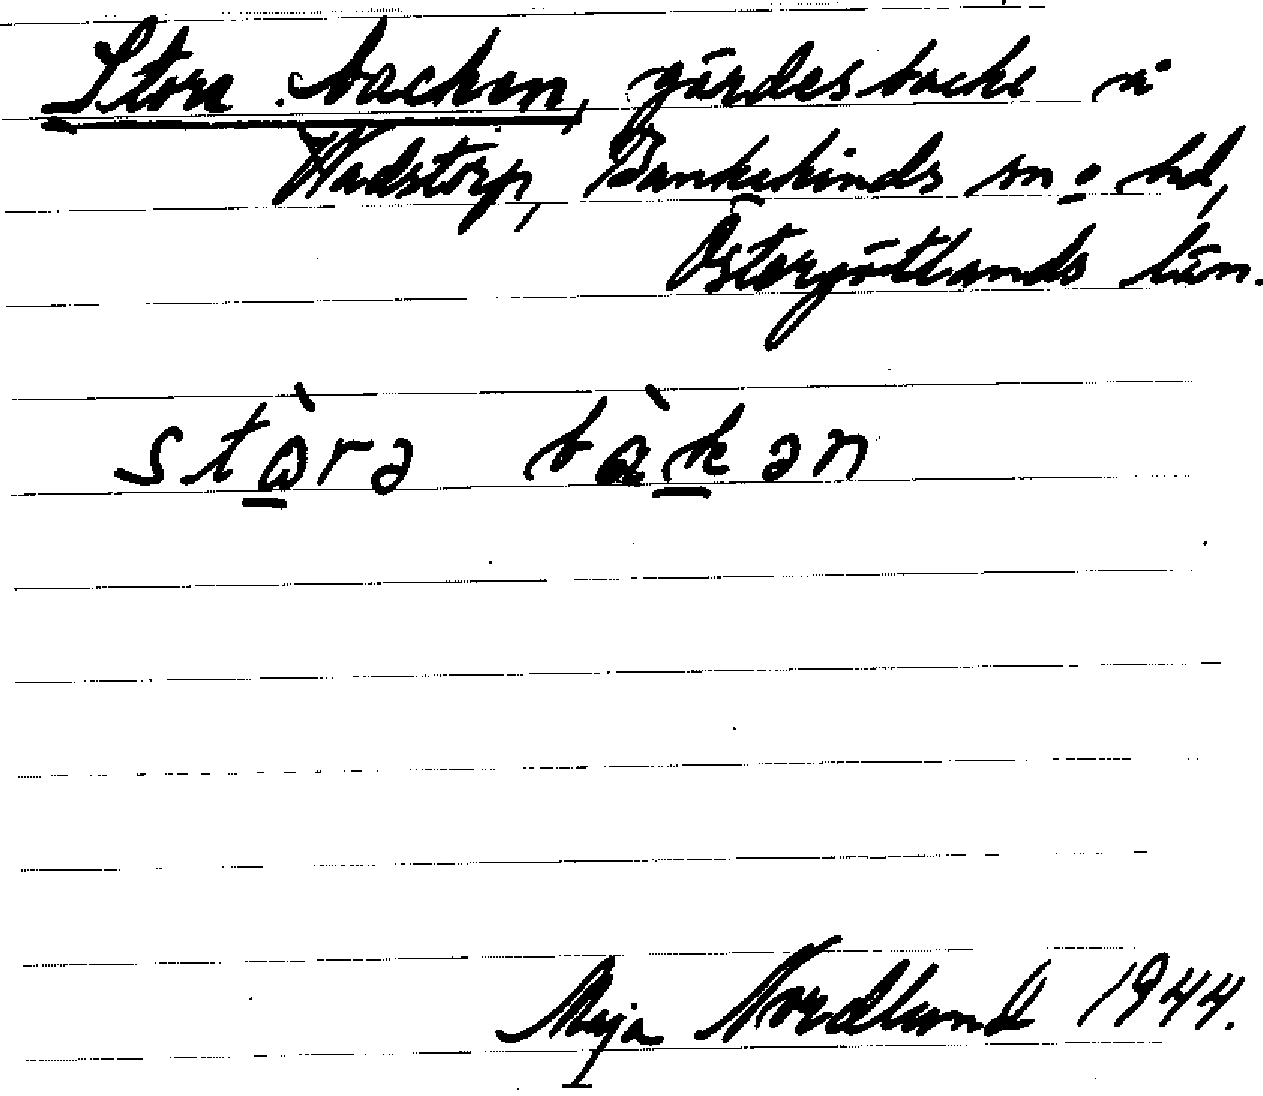 Stora backen, gärdesbacke å
Wadstorp, Bankekinds sn o hd,
Östergötlands län.
stòra bàkən
Maja Nordlund 1944.